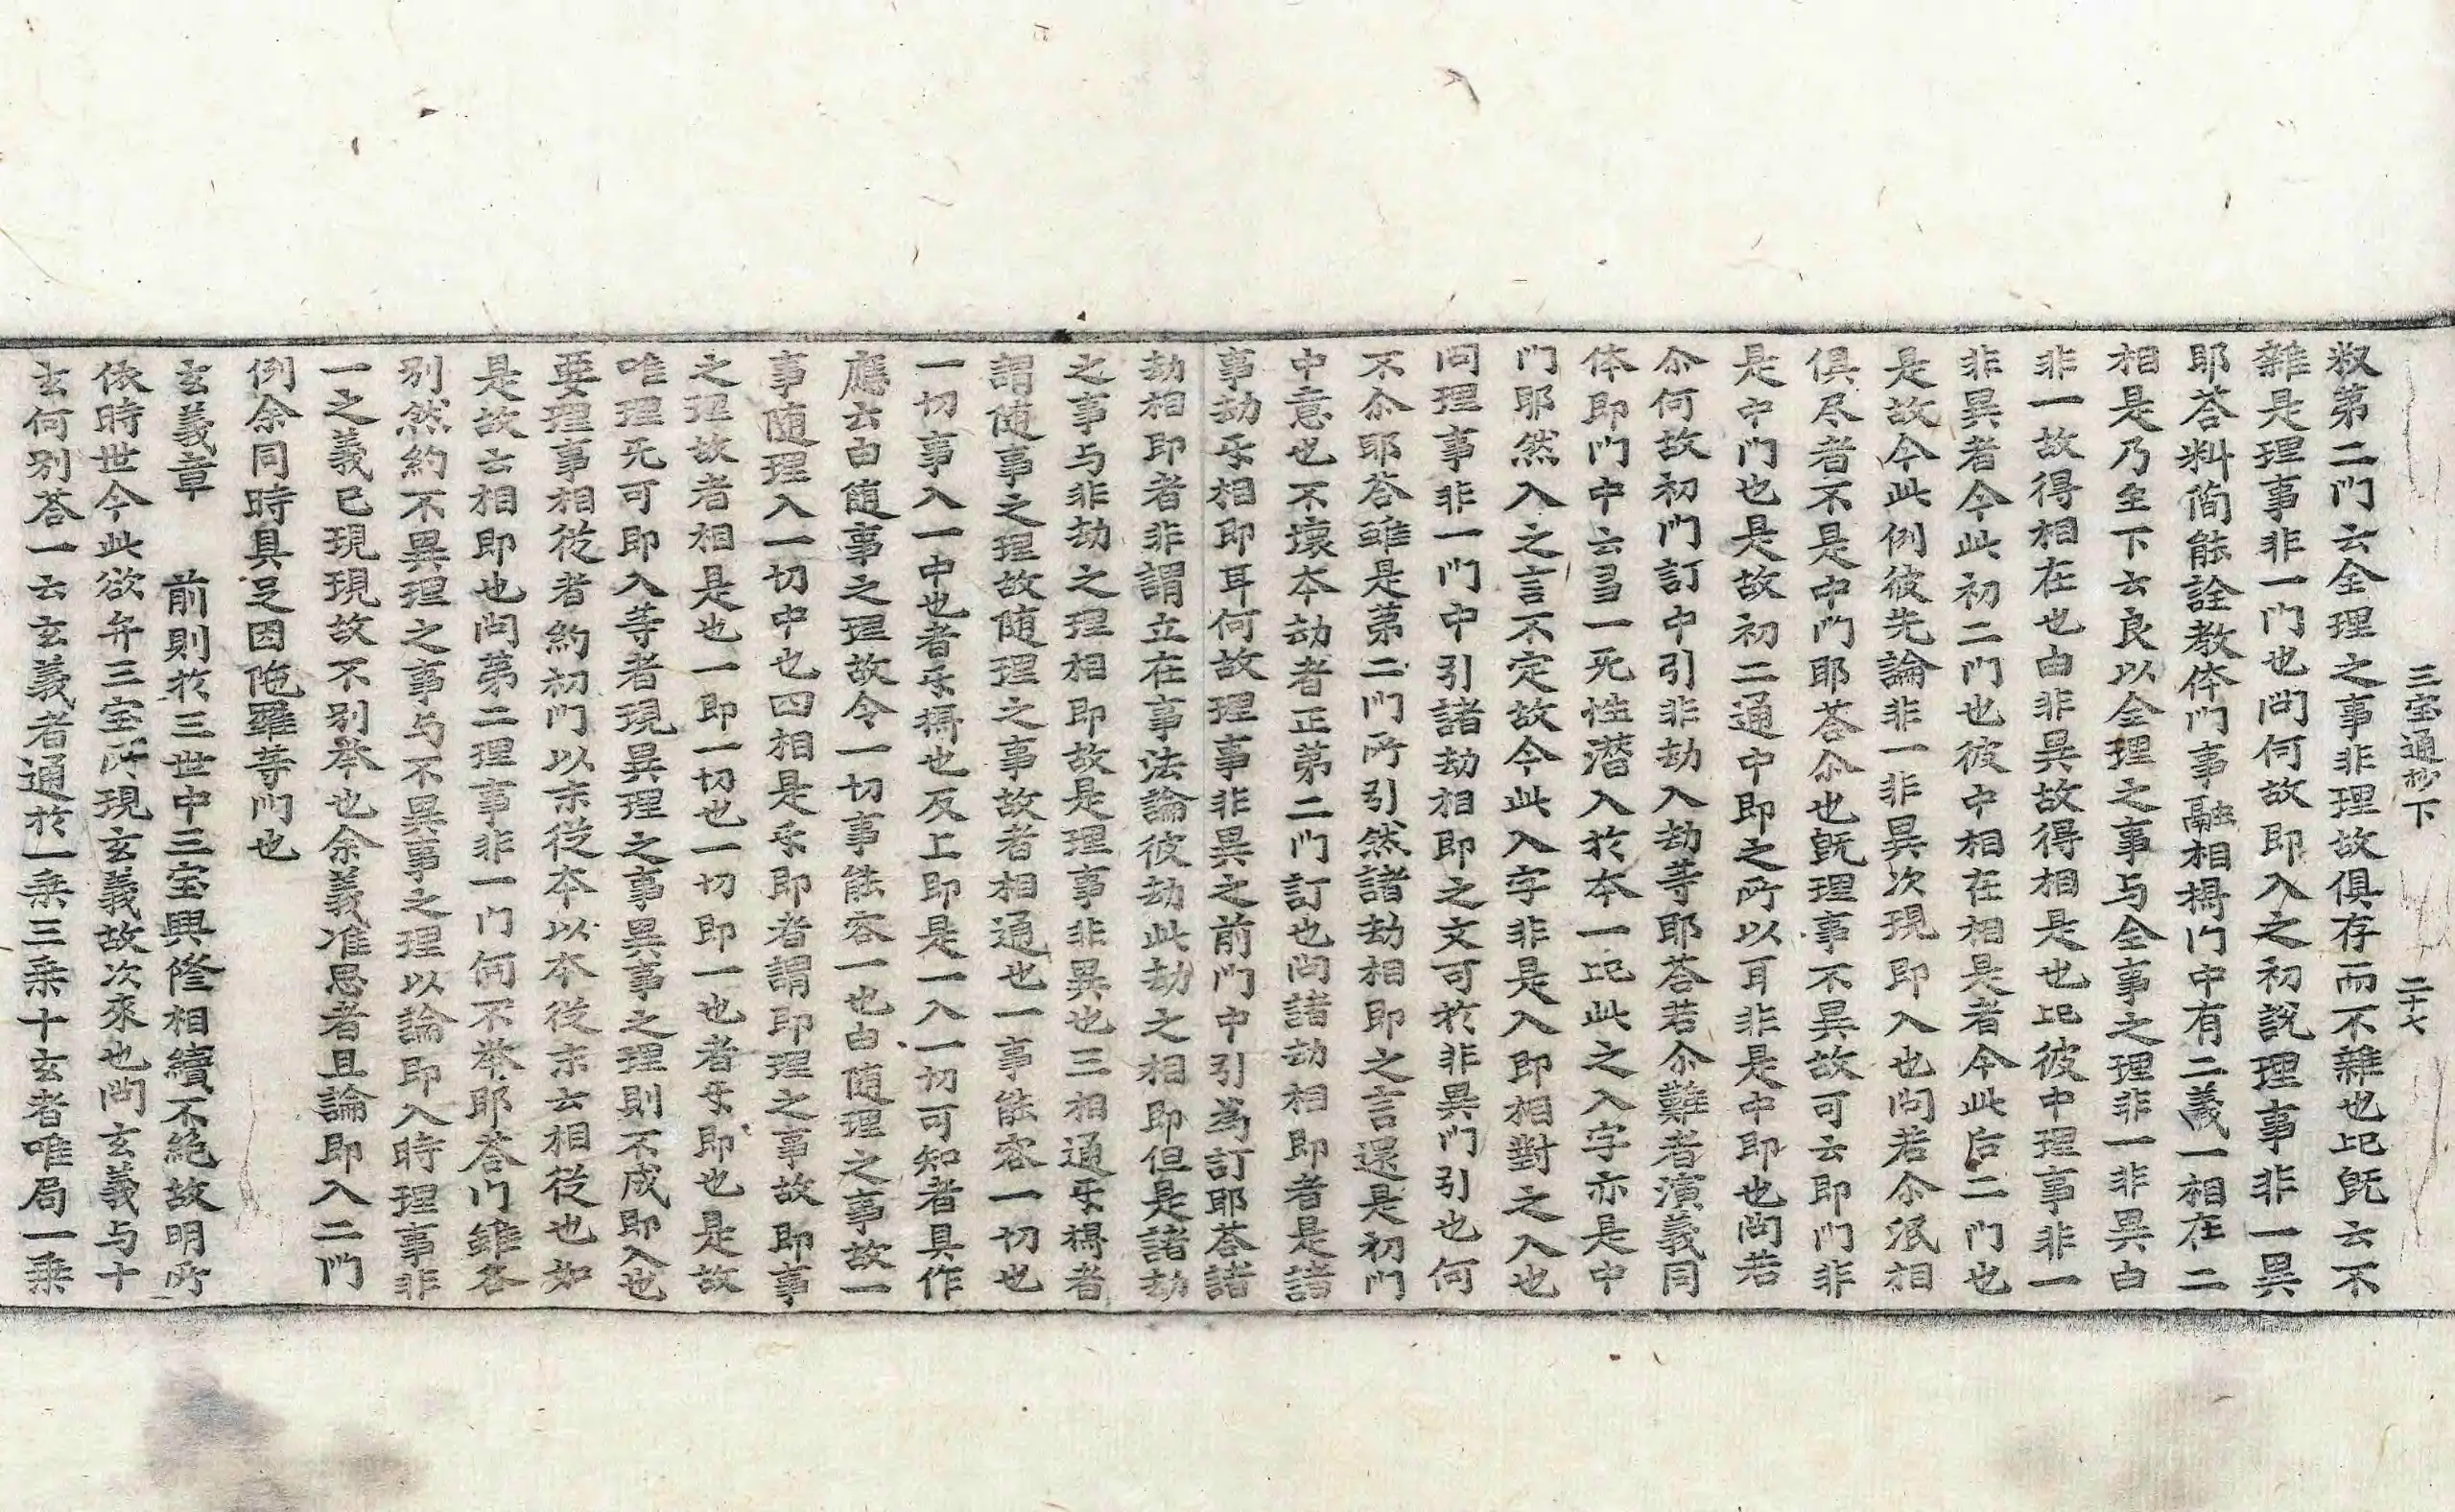 三宝通抄下 二十七
釈第二門云全理之事非理故俱存而不雜也記既云不
雜是理事非一門也問何故即入之初說理事非一異
耶答料簡能詮教体門事融相攝門中有二義一相在二
相是乃至下云良以全理之事与全事之理非一非異由
非一故得相在也由非異故得相是也記彼中理事非一
非異者今此初二門也彼中相在相是者今此后二門也
是故今此例彼先論非一非異次現即入也問若尒泯相
俱尽者不是中門耶答尒也既理事不異故可云即門非
是中門也是故初二通中即之所以耳非是中即也問若
尒何故初門訂中引非劫入劫等耶答若尒難者演義同
体即門中云当一死性潛入於本一記此之入字亦是中
门耶然入之言不定故今此入字非是入即相對之入也
问理事非一门中引諸劫相即之文可於非異门引也何
不尒耶答雖是第二门所引然諸劫相即之言還是初門
中意也不壞本劫者正第二门訂也问諸劫相即者是諸
事劫乐相即耳何故理事非異之前门中引為訂耶答諸
劫相即者非謂立在事法論彼劫此劫之相即但是諸劫
之事与非劫之理相即故是理事非異也三相通乐攝者
謂随事之理故随理之事故者相通也一事能容一切也
一切事入一中也者乐攝也反上即是一入一切可知者具作
應云由随事之理故令一切事能容一也由随理之事故一
事随理入一切中也四相是乐即者謂即理之事故即事
之理故者相是也一即一切也一切即一也者乐即也是故
唯理无可即入等者現異理之事異事之理則不成即入也
要理事相從者約初门以末從本以本從末云相從也如
是故云相即也问第二理事非一门何不举耶答门雖各
別然約不異理之事与不異事之理以論即入時理事非
一之義已現現故不別举也余義准思者且論即入二門
例余同時具足因陁羅等门也
玄義章 前則於三世中三宝興修相續不絶故明所
依時世今此欲弁三宝所現玄義故次來也问玄義与十
玄何別答一云玄義者通於一乗三乗十玄者唯局一乗